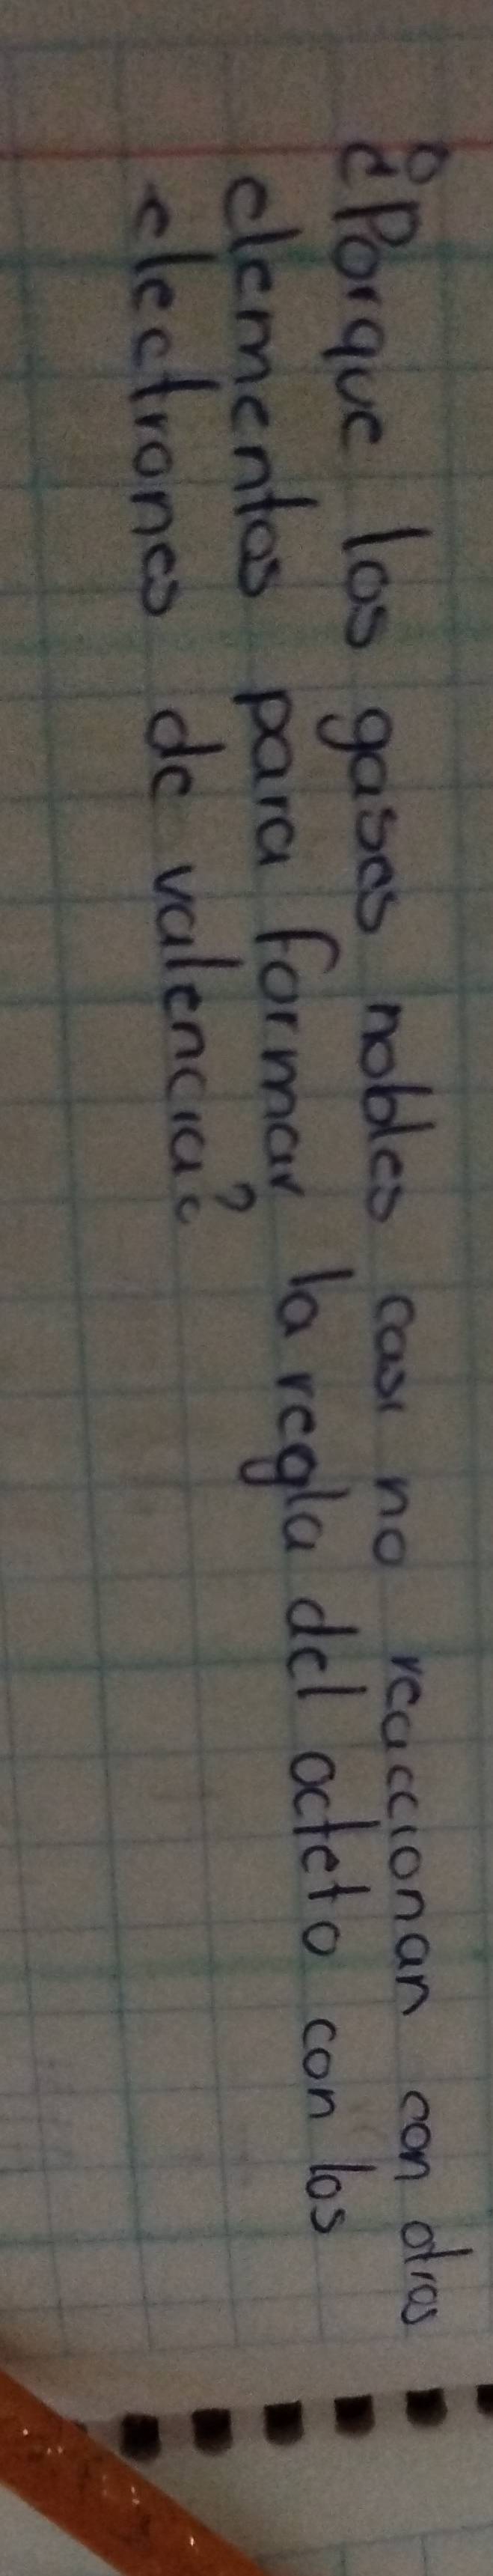 ¿Porque los gases nobles casi no reaccionan con otros
elementos para formar la regla del octeto con los
electrones de valencia?